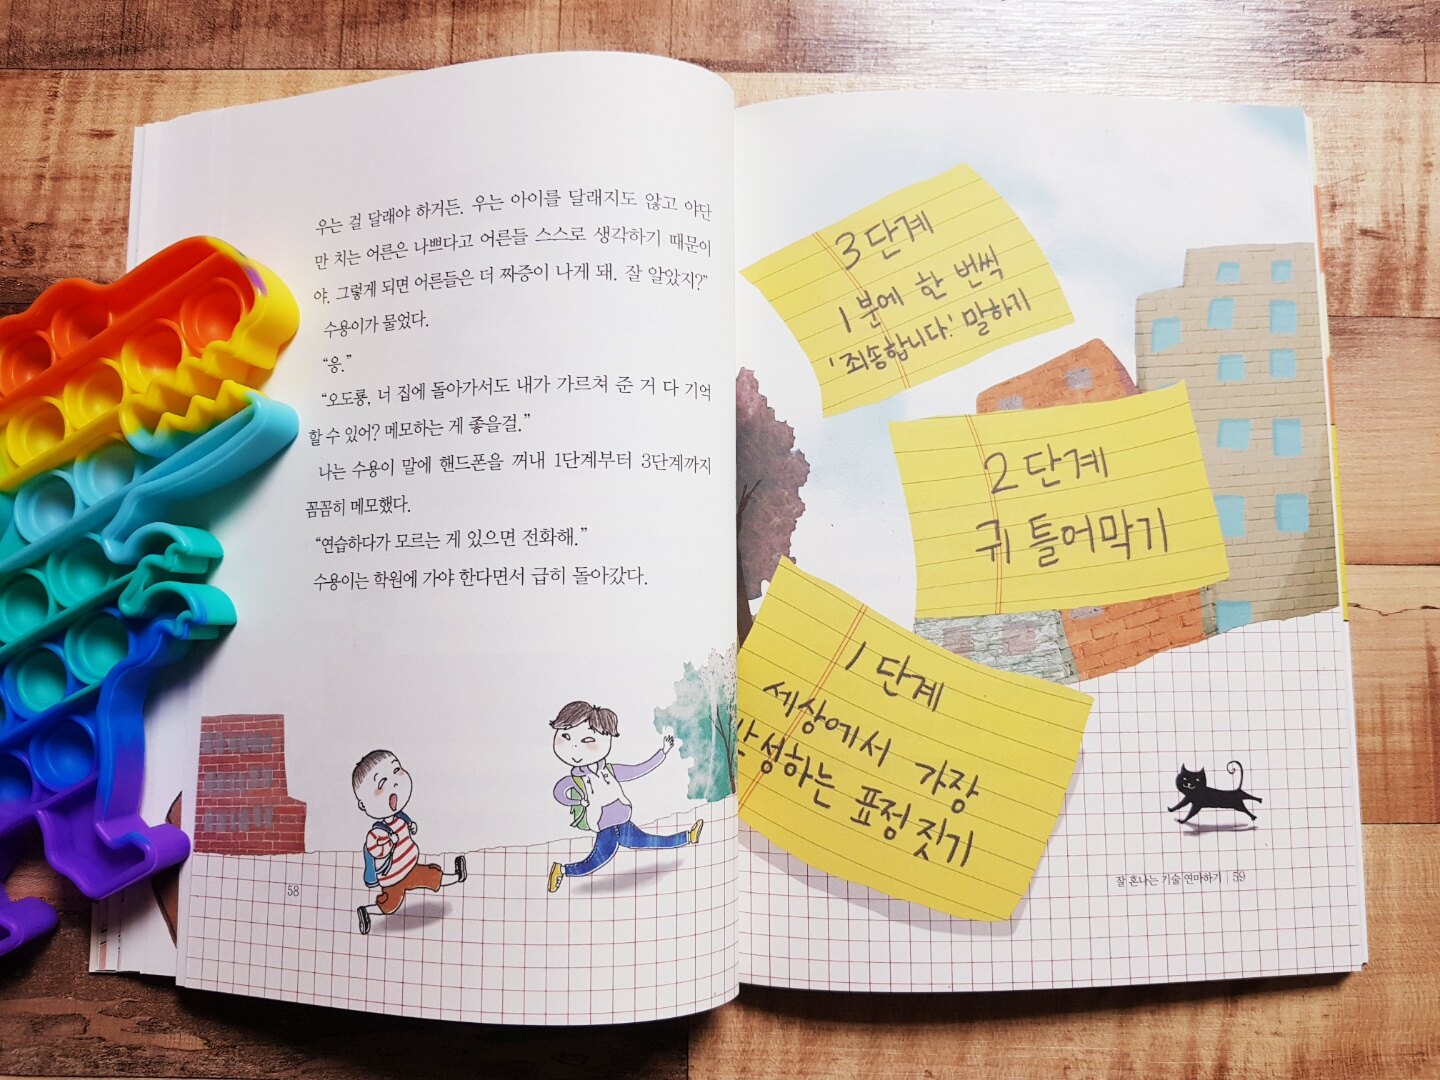 우는 걸 달래야 하거든. 우는 아이를 달래지도 않고 야단
만 치는 어른은 나쁘다고 어른들 스스로 생각하기 때문이
야. 그렇게 되면 어른들은 더 짜증이 나게 돼. 잘 알았지?”
수용이가 물었다.
“응.”
“오도룡, 너 집에 돌아가서도 내가 가르쳐 준 거 다 기억
할 수 있어? 메모하는 게 좋을걸.”
나는 수용이 말에 핸드폰을 꺼내 1단계부터 3단계까지
꼼꼼히 메모했다.
“연습하다가 모르는 게 있으면 전화해.”
수용이는 학원에 가야 한다면서 급히 돌아갔다.
58
3단계
1분에 한 번씩
'죄송합니다.' 말하기
2단계
귀 틀어막기
1단계
세상에서 가장
반성하는 표정 짓기
잘 혼나는 기술 연마하기 | 59